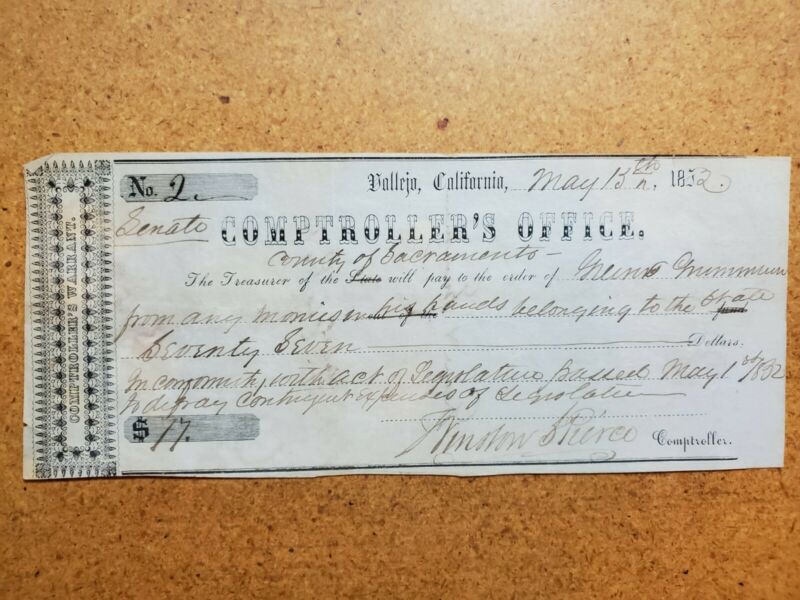 COMPTROLLER'S WARRANT.
No. 2. Vallejo, California, May 13th, 1852.
Senate COMPTROLLER'S OFFICE.
County of Sacramento
The Treasurer of the State will pay to the order of
from any monies in his hands belonging to the State fund
Seventy Seven Dollars.
In conformity with act of Legislature passed May 1st 1852
to defray contingent expenses of Legislature
$ 77. Winston S Pierce Comptroller.